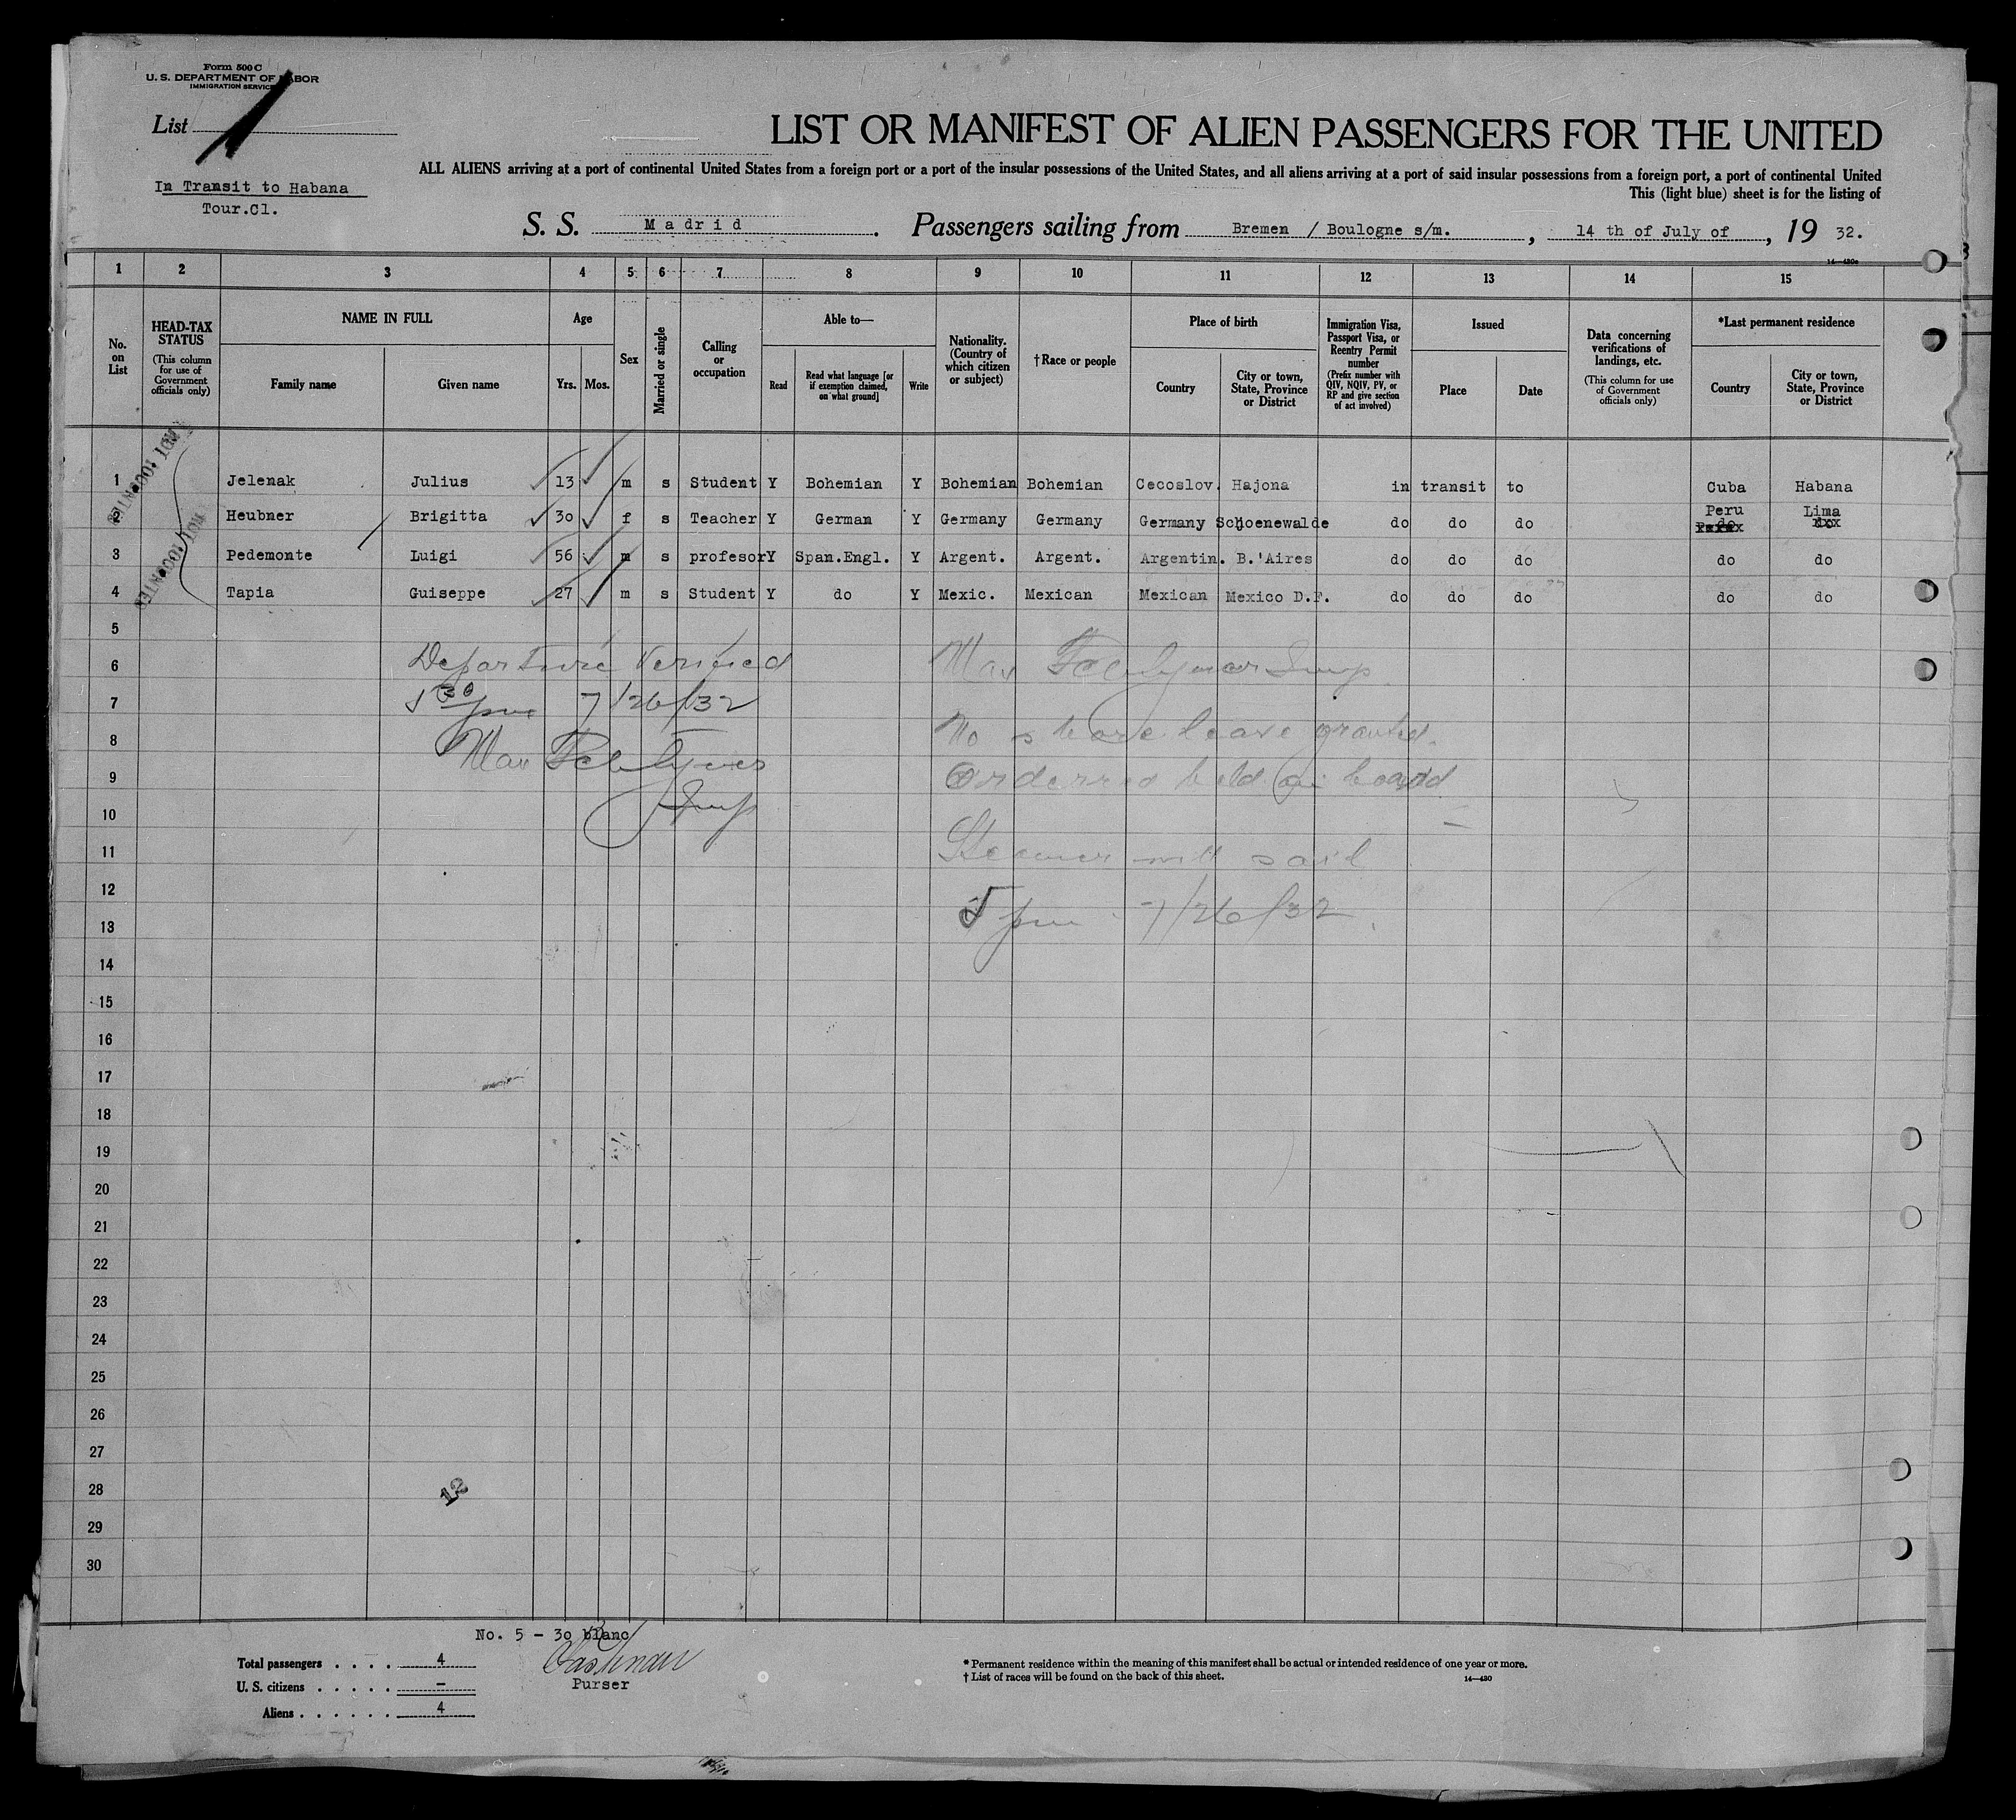 Form 500 C
U. S. DEPARTMENT OF LABOR
IMMIGRATION SERVICE
List
In Transit to Habana
Tour.Cl.
LIST OR MANIFEST OF ALIEN PASSENGERS FOR THE UNITED
ALL ALIENS arriving at a port of continental United States from a foreign port or a port of the insular possessions of the United States, and all aliens arriving at a port of said insular possessions from a foreign port, a port of continental United
This (light blue) sheet is for the listing of
S. S. Madrid. Passengers sailing from Bremen / Boulogne s/m., 14 th of July of, 19 32.
14—430c
1 2 3 4 5 6 7 8 9 10 11 12 13 14 15
No. on List
HEAD-TAX STATUS
(This column for use of Government officials only)
NAME IN FULL
Family name Given name
Age
Yrs. Mos.
Sex
Married or single
Calling or occupation
Able to—
Read
Read what language [or if exemption claimed, on what ground]
Write
Nationality. (Country of which citizen or subject)
†Race or people
Place of birth
Country
City or town, State, Province or District
Immigration Visa, Passport Visa, or Reentry Permit number
(Prefix number with QIV, NQIV, PV, or RP and give section of act involved)
Issued
Place Date
Data concerning verifications of landings, etc.
(This column for use of Government officials only)
*Last permanent residence
Country
City or town, State, Province or District
NOT 10CONTED
NOT 10CONTED
1 Jelenak Julius 13 m s Student Y Bohemian Y Bohemian Bohemian Cecoslov. Hajona in transit to Cuba Habana
2 Heubner Brigitta 30 f s Teacher Y German Y Germany Germany Germany Schoenewalde do do do Peru Lima
3 Pedemonte Luigi 56 m s profesor Y Span.Engl. Y Argent. Argent. Argentin. B.'Aires do do do do do
4 Tapia Guiseppe 27 m s Student Y do Y Mexic. Mexican Mexican Mexico D.F. do do do do do
5
6 Departure Verified Max Insp.
7 5 30 pm 7/26/32
8 Max No shore leave granted.
9 Ordered held on board
10 Insp
11 Steamer will sail
12
13 5 pm 7/26/32
14
15
16
17
18
19
20
21
22
23
24
25
26
27
28 12
29
30
No. 5 - 30 blanc
Total passengers . . . . 4
U. S. citizens . . . . . -
Aliens . . . . . . 4
Purser
* Permanent residence within the meaning of this manifest shall be actual or intended residence of one year or more.
† List of races will be found on the back of this sheet.
14—430